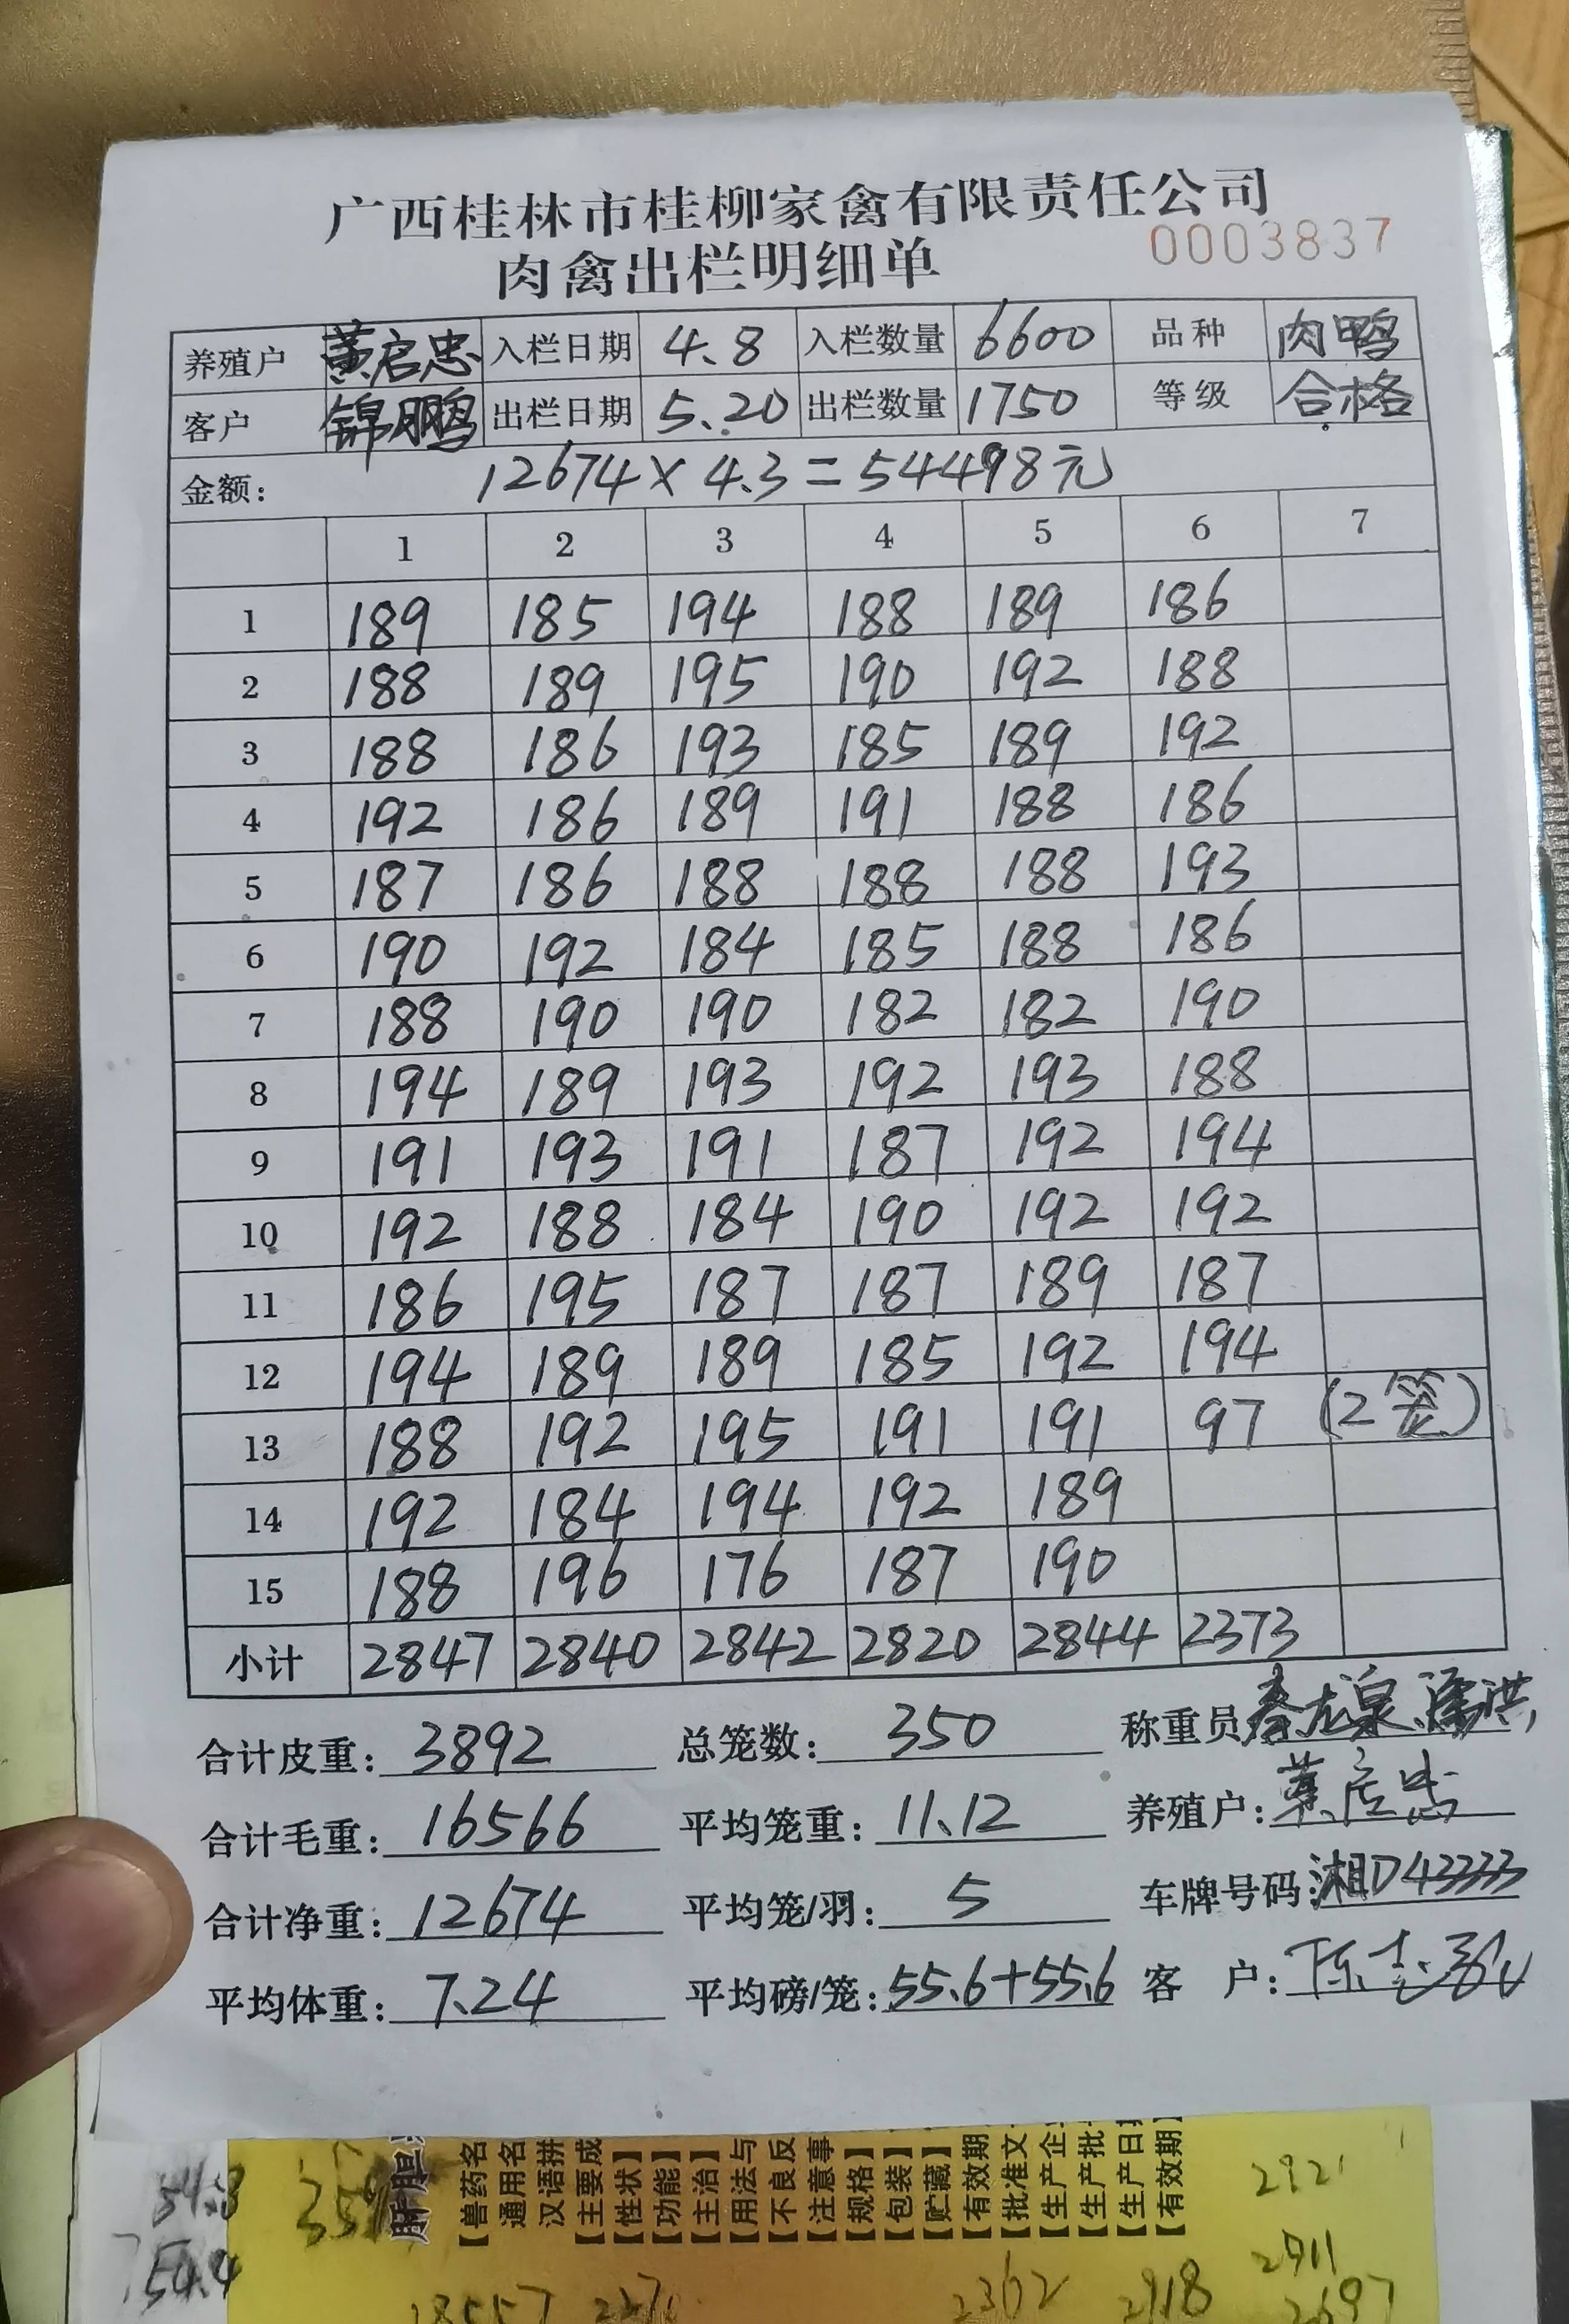 广西桂林市桂柳家禽有限责任公司
肉禽出栏明细单 0003837
养殖户 黄启忠 入栏日期 4.8 入栏数量 6600 品种 肉鸭
客户 锦鹏 出栏日期 5.20 出栏数量 1750 等级 合格
金额: 12674×4.3=54498元
1 2 3 4 5 6 7
1 189 185 194 188 189 186
2 188 189 195 190 192 188
3 188 186 193 185 189 192
4 192 186 189 191 188 186
5 187 186 188 188 188 193
6 190 192 184 185 188 186
7 188 190 190 182 182 190
8 194 189 193 192 193 188
9 191 193 191 187 192 194
10 192 188 184 190 192 192
11 186 195 187 187 189 187
12 194 189 189 185 192 194
13 188 192 195 191 191 97 (2笼)
14 192 184 194 192 189
15 188 196 176 187 190
小计 2847 2840 2842 2820 2844 2373
合计皮重: 3892 总笼数: 350 称重员
合计毛重: 16566 平均笼重: 11.12 养殖户:
合计净重: 12674 平均笼/羽: 5 车牌号码: 湘D43333
平均体重: 7.24 平均磅/笼: 55.6+55.6 客 户:
肝胆
【兽药名
通用名
汉语拼
【主要成
【性状】
【功能】
【主治】
【用法与
【不良反
【注意事
【规格】
【包装】
【贮藏】
【有效期
【批准文
【生产企
【生产批
【生产日
【有效期】
2921
2911
54.4
2362 2918